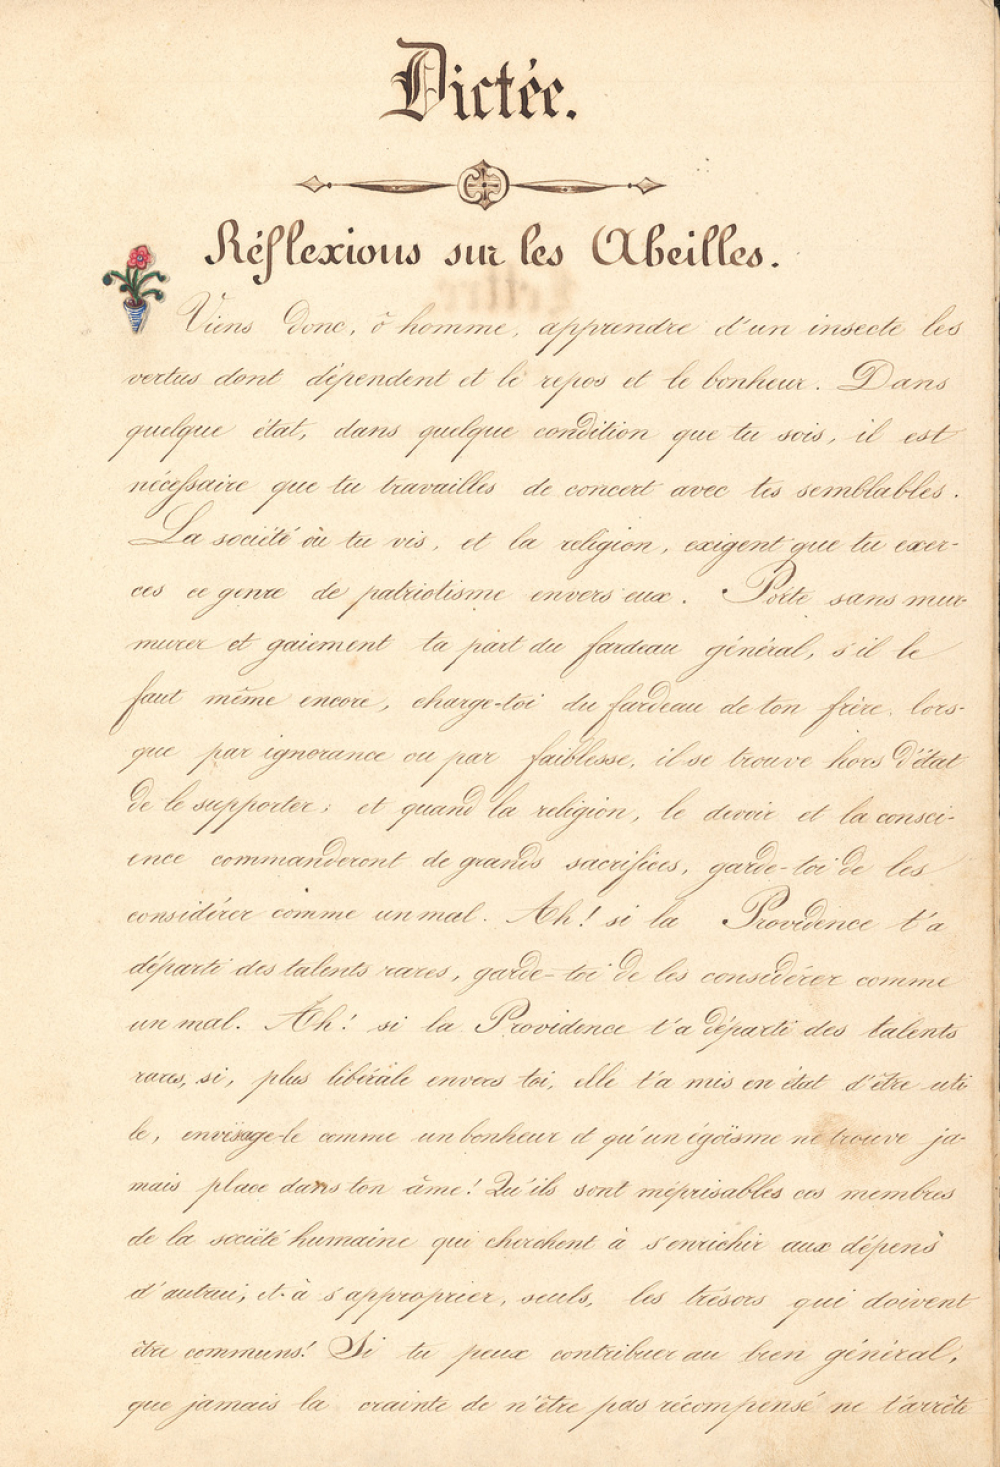 Dictée.
Réflexions sur les Abeilles.
Viens donc, ô homme, apprendre d'un insecte les
vertus dont dépendent et le repos et le bonheur. Dans
quelque état, dans quelque condition que tu sois, il est
nécessaire que tu travailles de concert avec tes semblables.
La société où tu vis, et la religion, exigent que tu exer-
ces ce genre de patriotisme envers eux. Porte sans mur-
murer et gaiement ta part du fardeau général, s'il le
faut même encore, charge-toi du fardeau de ton frère, lors-
que par ignorance ou par faiblesse, il se trouve hors d'état
de le supporter; et quand la religion, le devoir et la consci-
ence commanderont de grands sacrifices, garde-toi de les
considérer comme un mal. Ah! si la Providence t'a
départi des talents rares, garde-toi de les considérer comme
un mal. Ah! si la Providence t'a départi des talents
rares, si, plus libérale envers toi, elle t'a mis en état d'être uti
le, envisage-le comme un bonheur et qu'un égoïsme ne trouve ja-
mais place dans ton âme! Qu'ils sont méprisables ces membres
de la société humaine qui cherchent à s'enrichir aux dépens
d'autrui, et à s'approprier, seuls, les trésors qui doivent
être communs! Si tu peux contribuer au bien général,
que jamais la crainte de n'être pas récompensé ne t'arrête